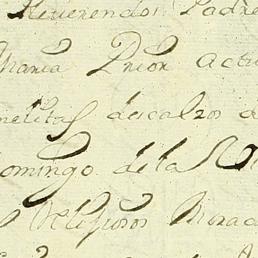 Reverendos Padre
Maria Prior actu
melitas descalzos d
omingo de la
Religiosos Morad